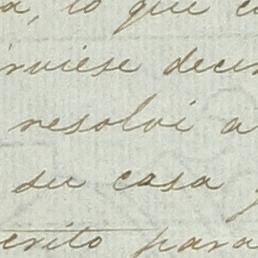 a, lo que
rviese deci
resolví a
su casa
crito para